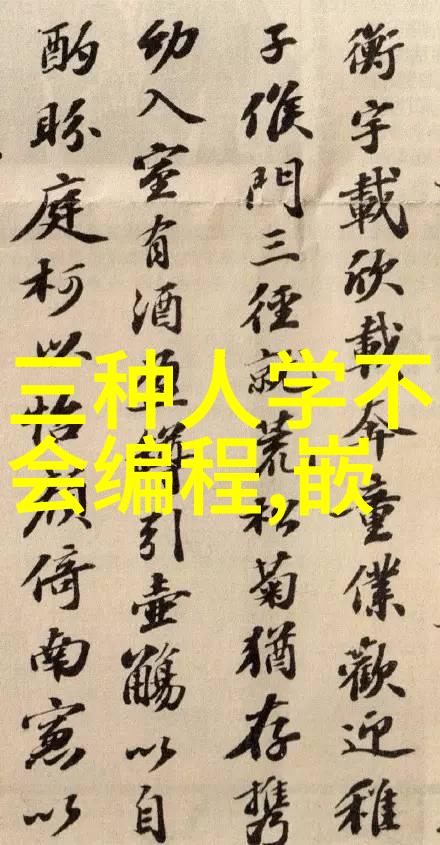 衡宇載欣載奔童僕歡迎稚
子候門三徑就荒松菊猶存携
幼入室有酒盈樽引壺觴以自
酌眄庭柯以怡顏倚南窻以
三种人学不
会编程,嵌